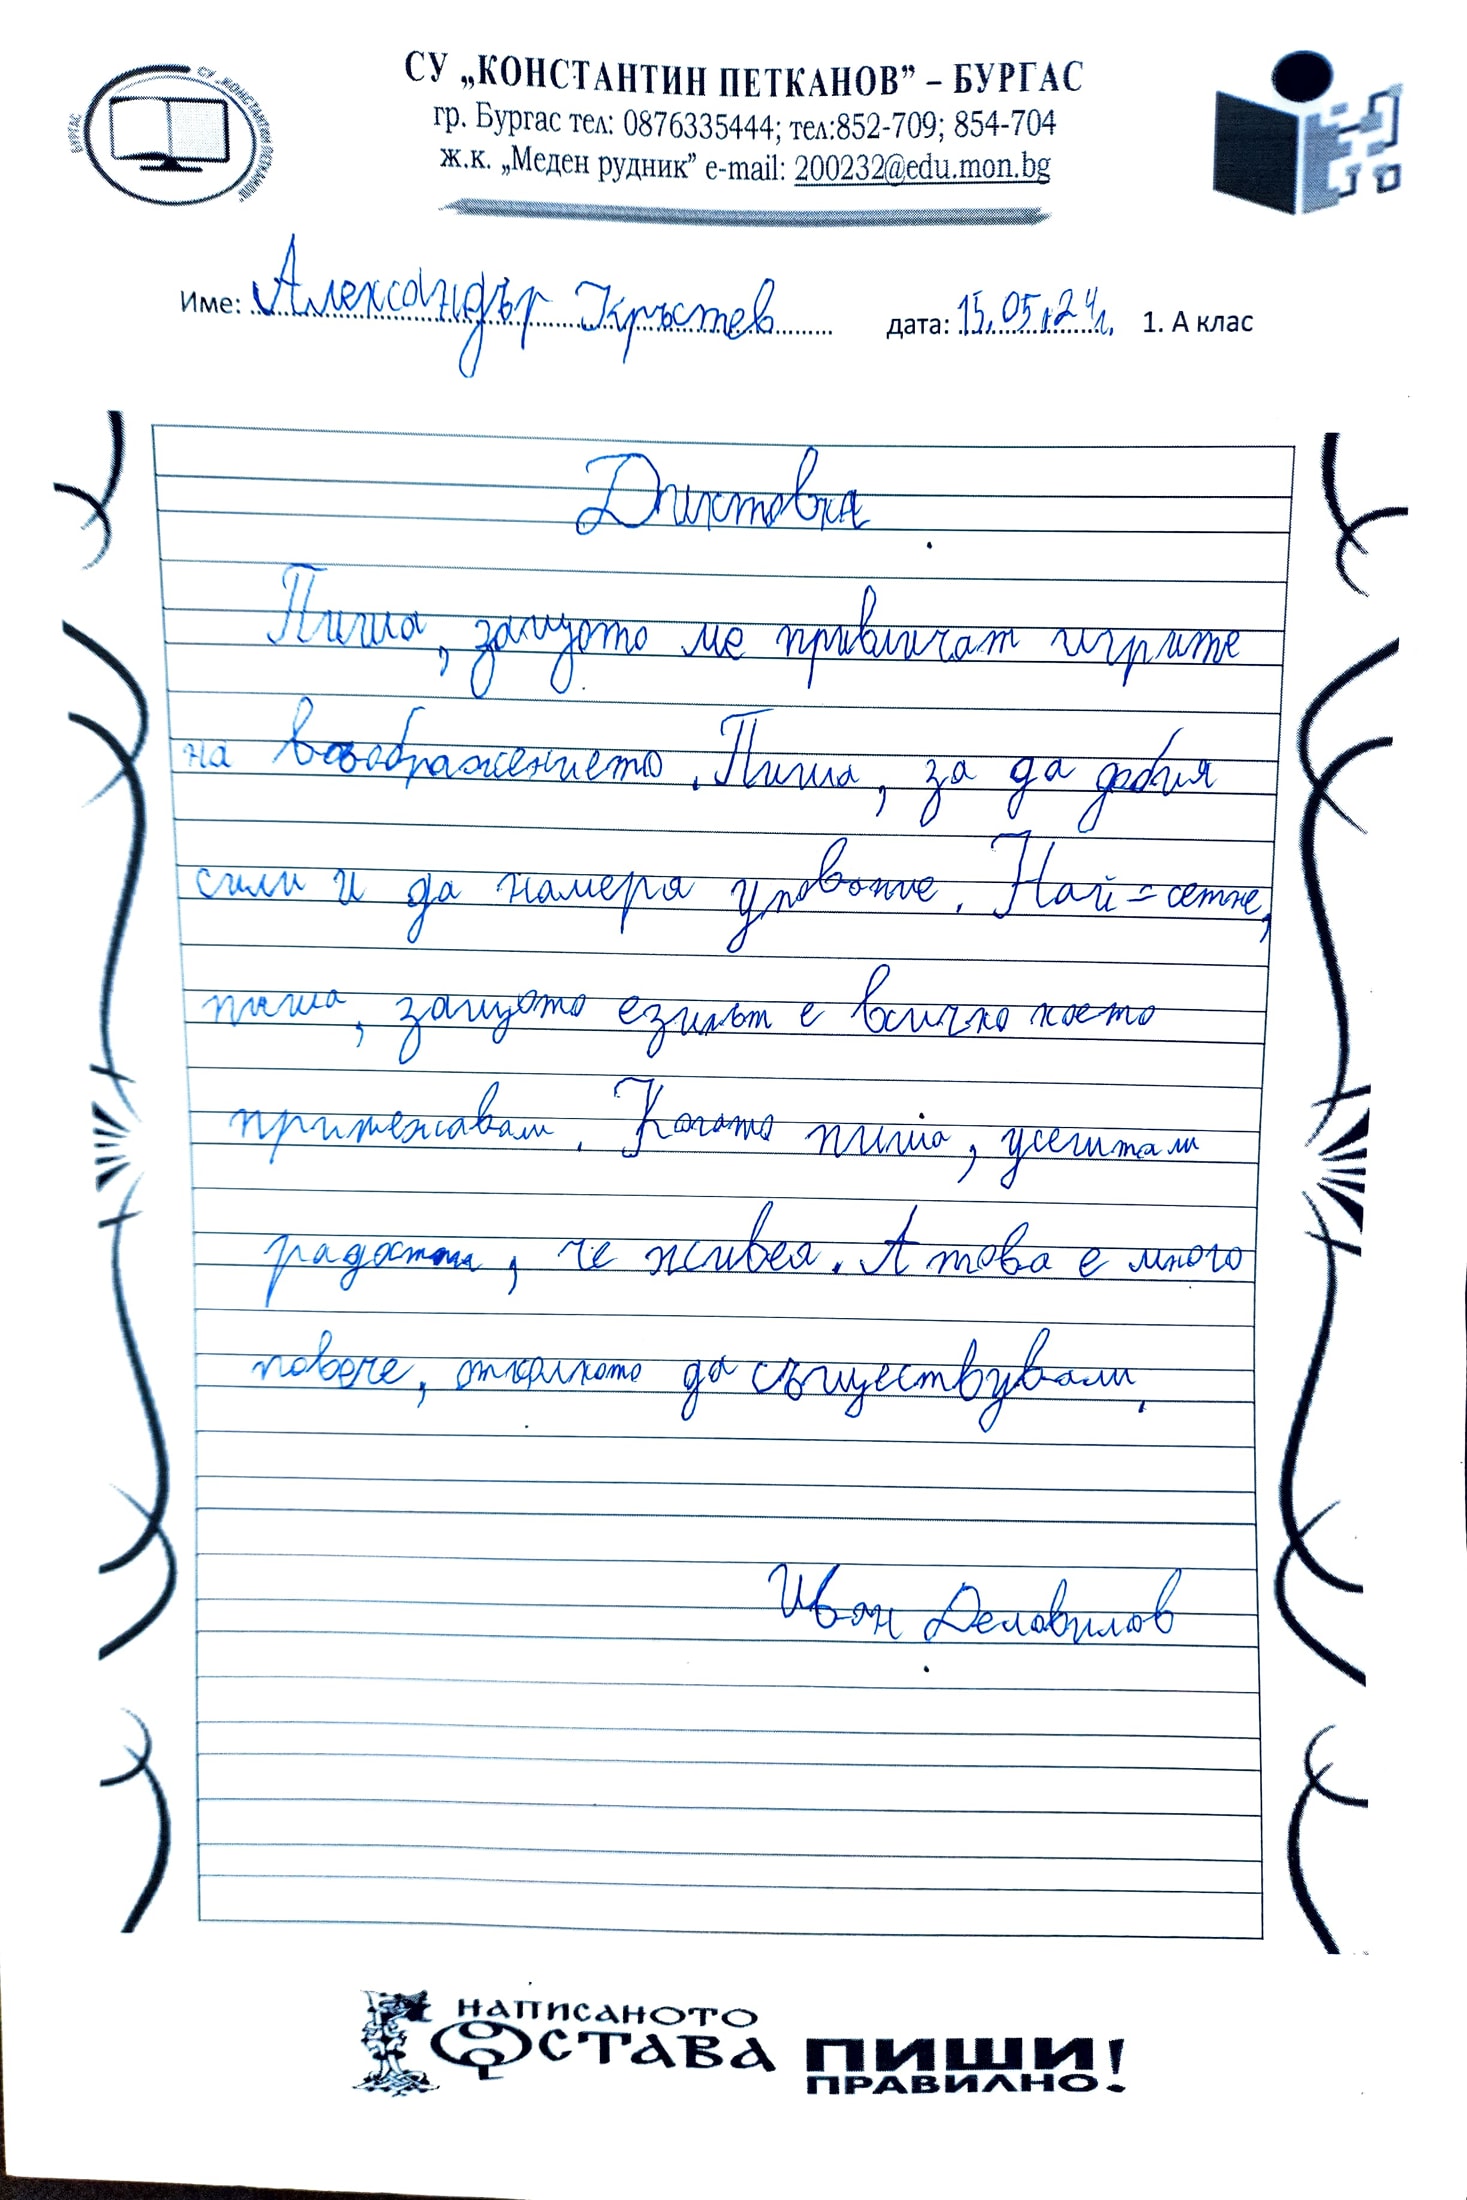 СУ „КОНСТАНТИН ПЕТКАНОВ” – БУРГАС
гр. Бургас тел: 0876335444; тел:852-709; 854-704
ж.к. „Меден рудник” e-mail: 200232@edu.mon.bg
СУ „КОНСТАНТИН ПЕТКАНОВ” БУРГАС
Име: Александър Кръстев дата: 15.05.24г. 1. А клас
Диктовка
Пиша, защото ме привличат игрите
на въображението. Пиша, за да добия
сили и да намеря упование. Най-сетне,
пиша, защото езикът е всичко което
притежавам. Когато пиша, усещам
, че живея. А това е много
повече, отколкото да съществувам.
Иван
НАПИСАНОТО
ОСТАВА ПИШИ
ПРАВИЛНО!